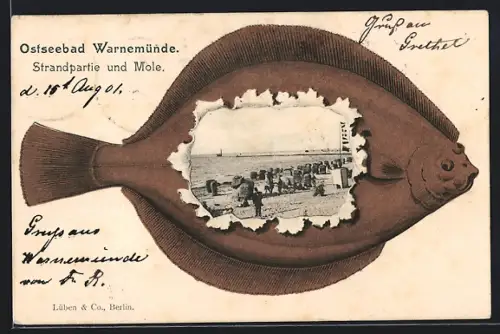 Ostseebad Warnemünde.
Strandpartie und Mole.
d. 15t Aug 01.
Gruß an
Grethel
Gruß aus
Warnemünde
von Fr. R.
Lüben & Co., Berlin.